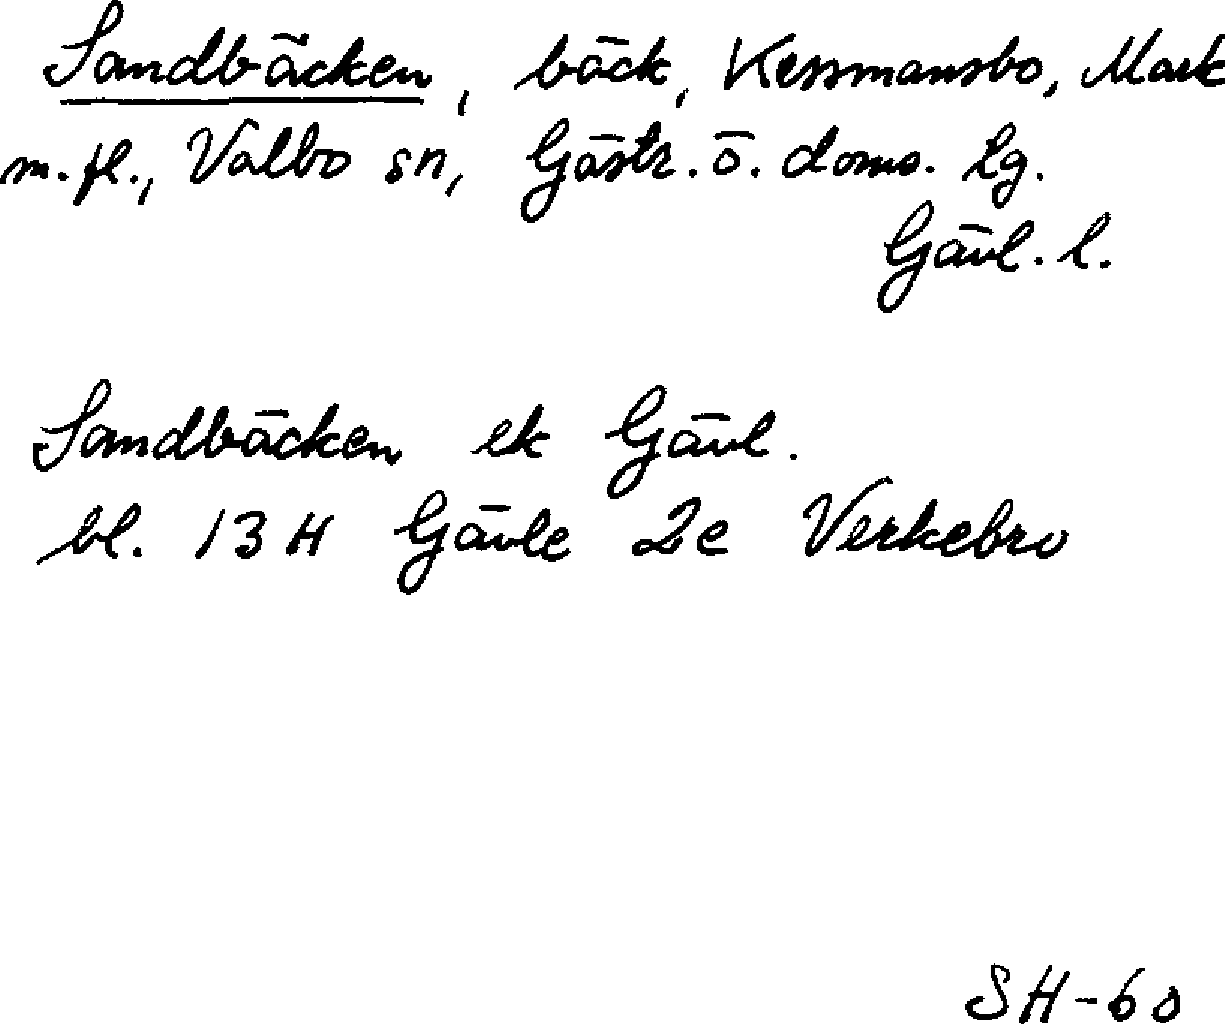 Sandbäcken, bäck, Kessmansbo, Mark
m.fl., Valbo sn, Gästr. ö. doms. tg.
Gävl. l.
Sandbäcken ek Gävl.
bl. 13 H Gävle 2e Verkebro
SH-60